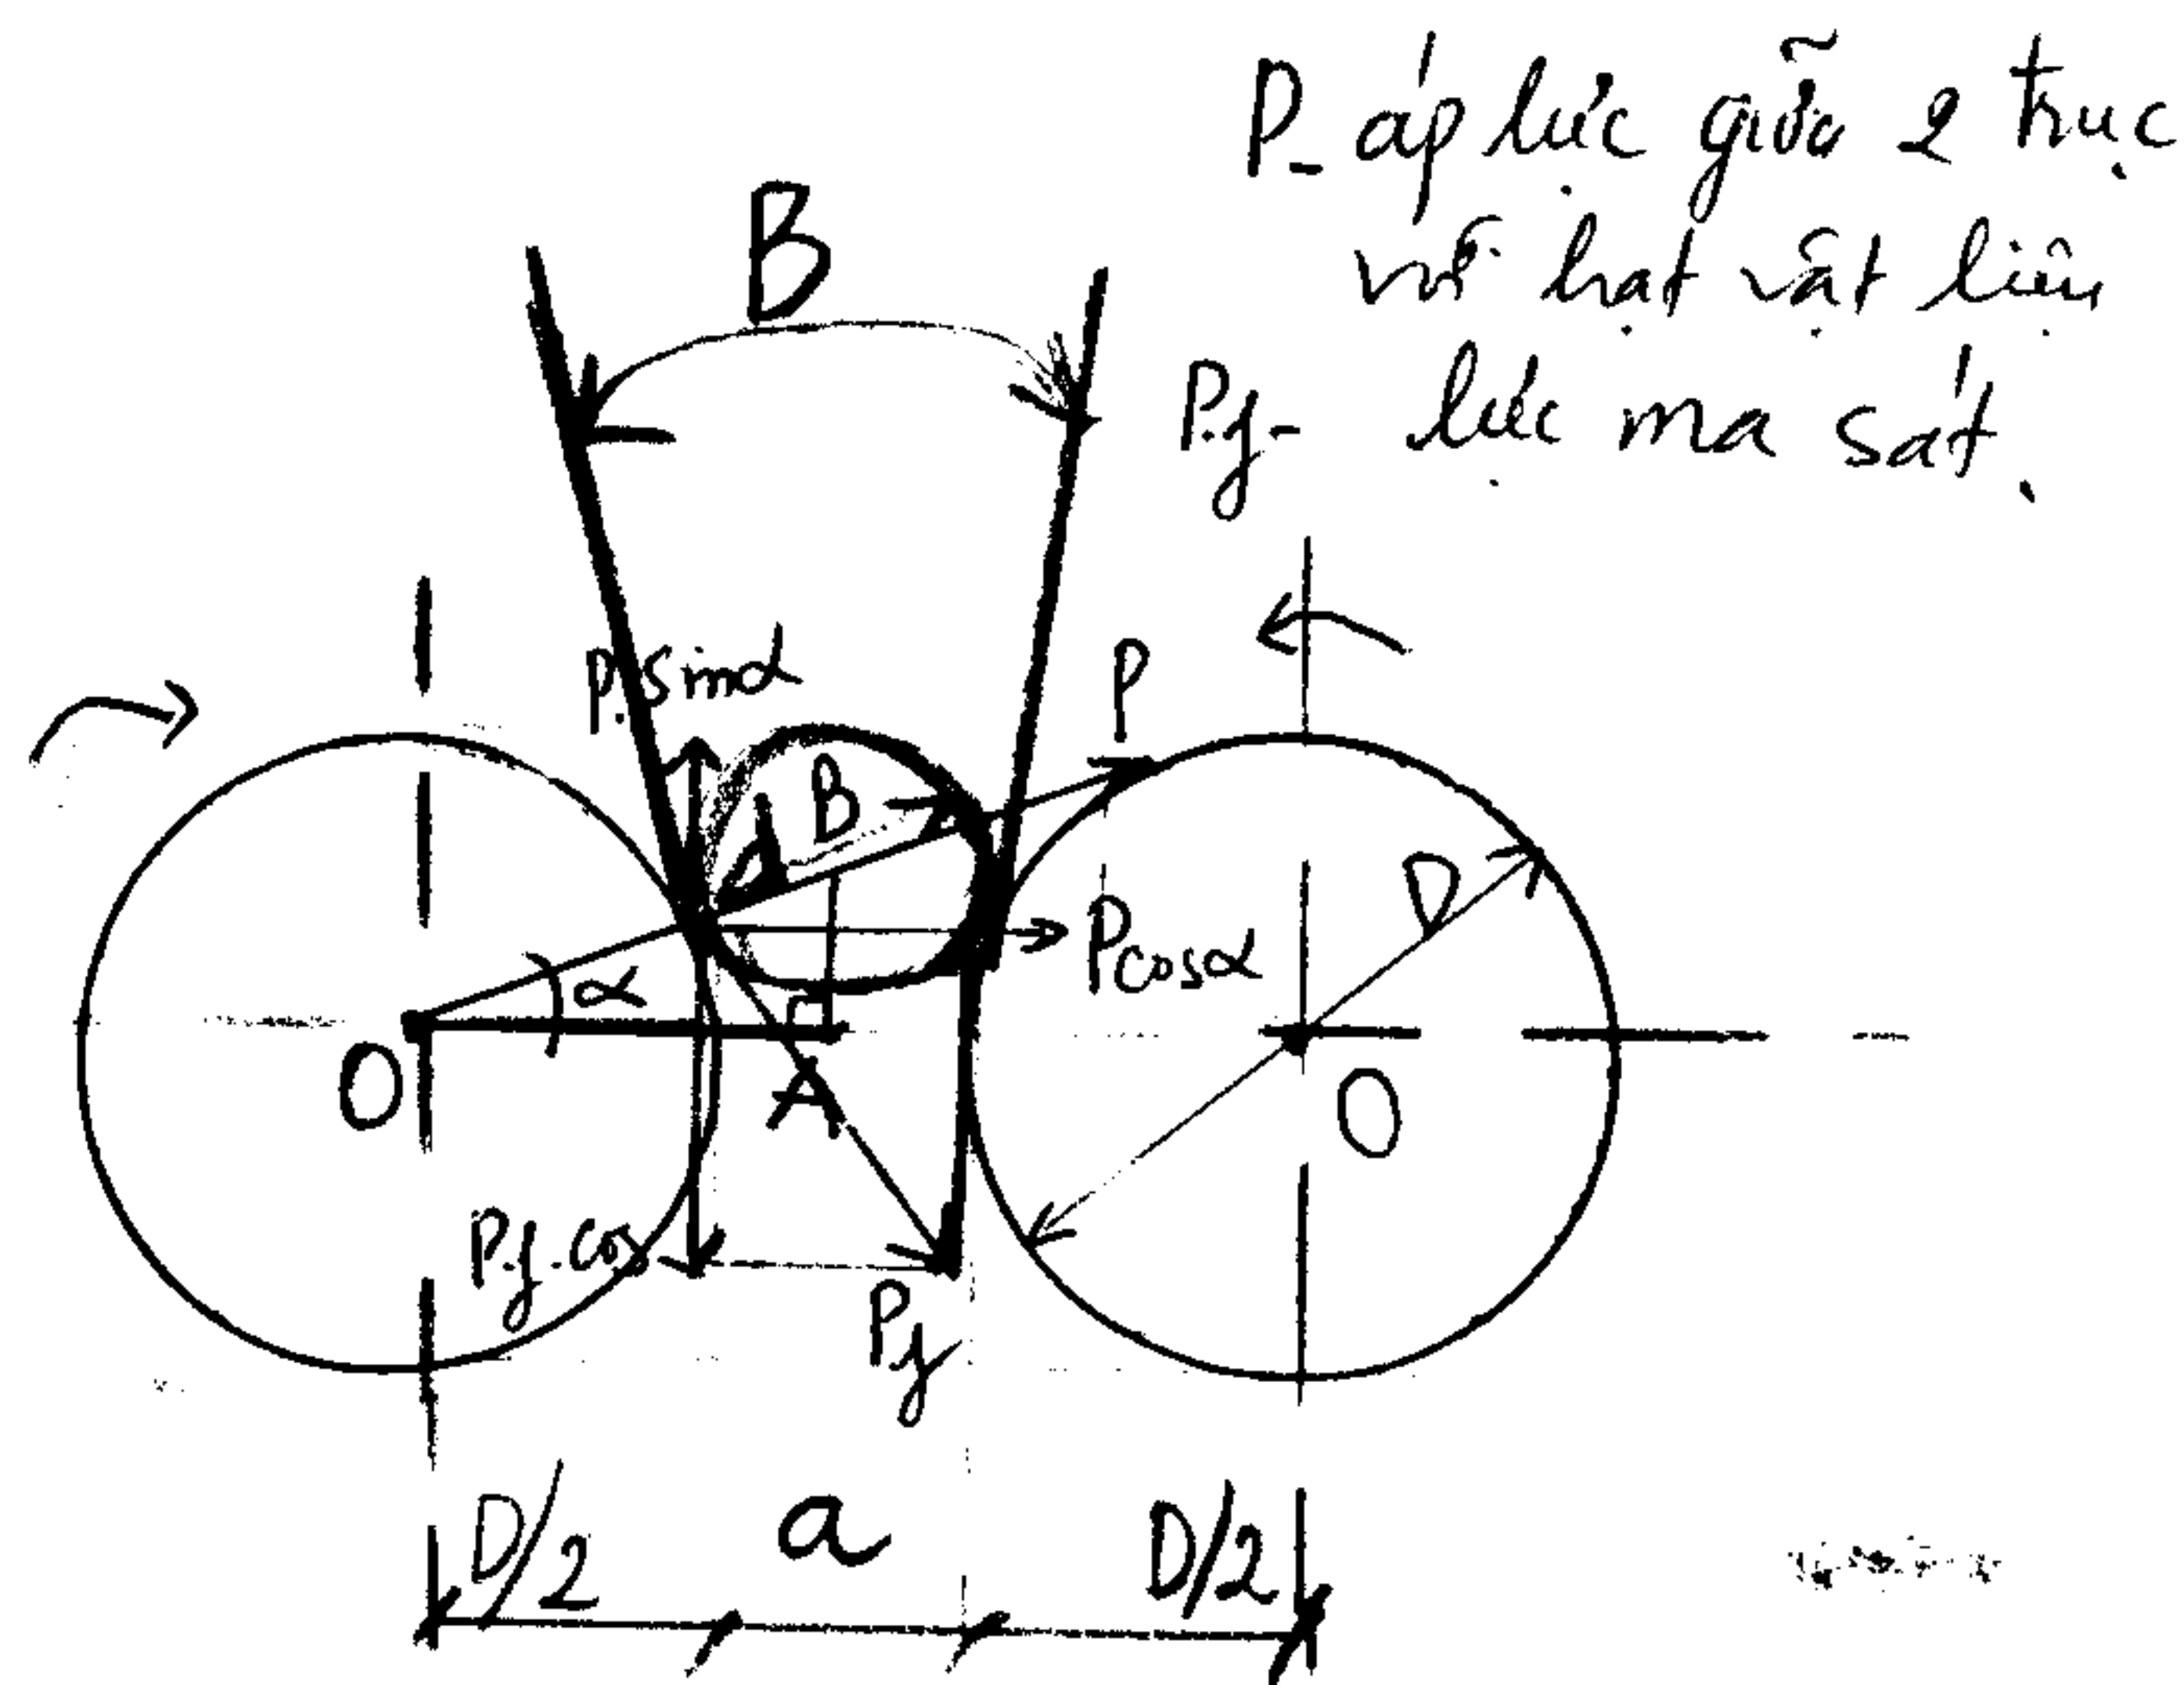 P_ áp lực giữa 2 trục
với hạt vật liệu
P.f - lực ma sát.
B
P.sinα
P
d
B
D
Pcosα
α
O
A
O
P.f.cos
Pf
D/2
a
D/2